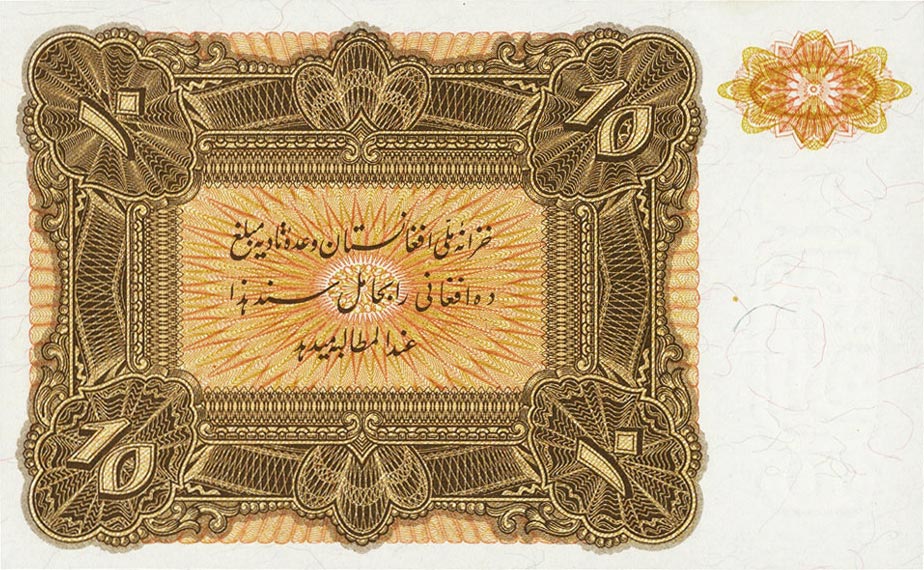 ۱۰ 10
خزانه ملّی افغانستان وعدهٔ تادیه مبلغ
ده افغانی را بحامل سند هذا
عندالمطالبه میدهد
10 ۱۰